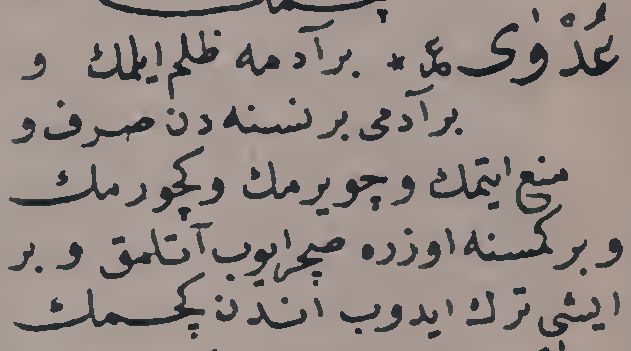 عُدْوٰى ع * برآدمه ظلم ايلمك و
برآدمى بر نسنه دن صرف و
منع ايتمك و چويرمك و كچورمك
و بر كمسنه اوزره صچرايوب آتلمق و بر
ايشى ترك ايدوب اندن كچمك